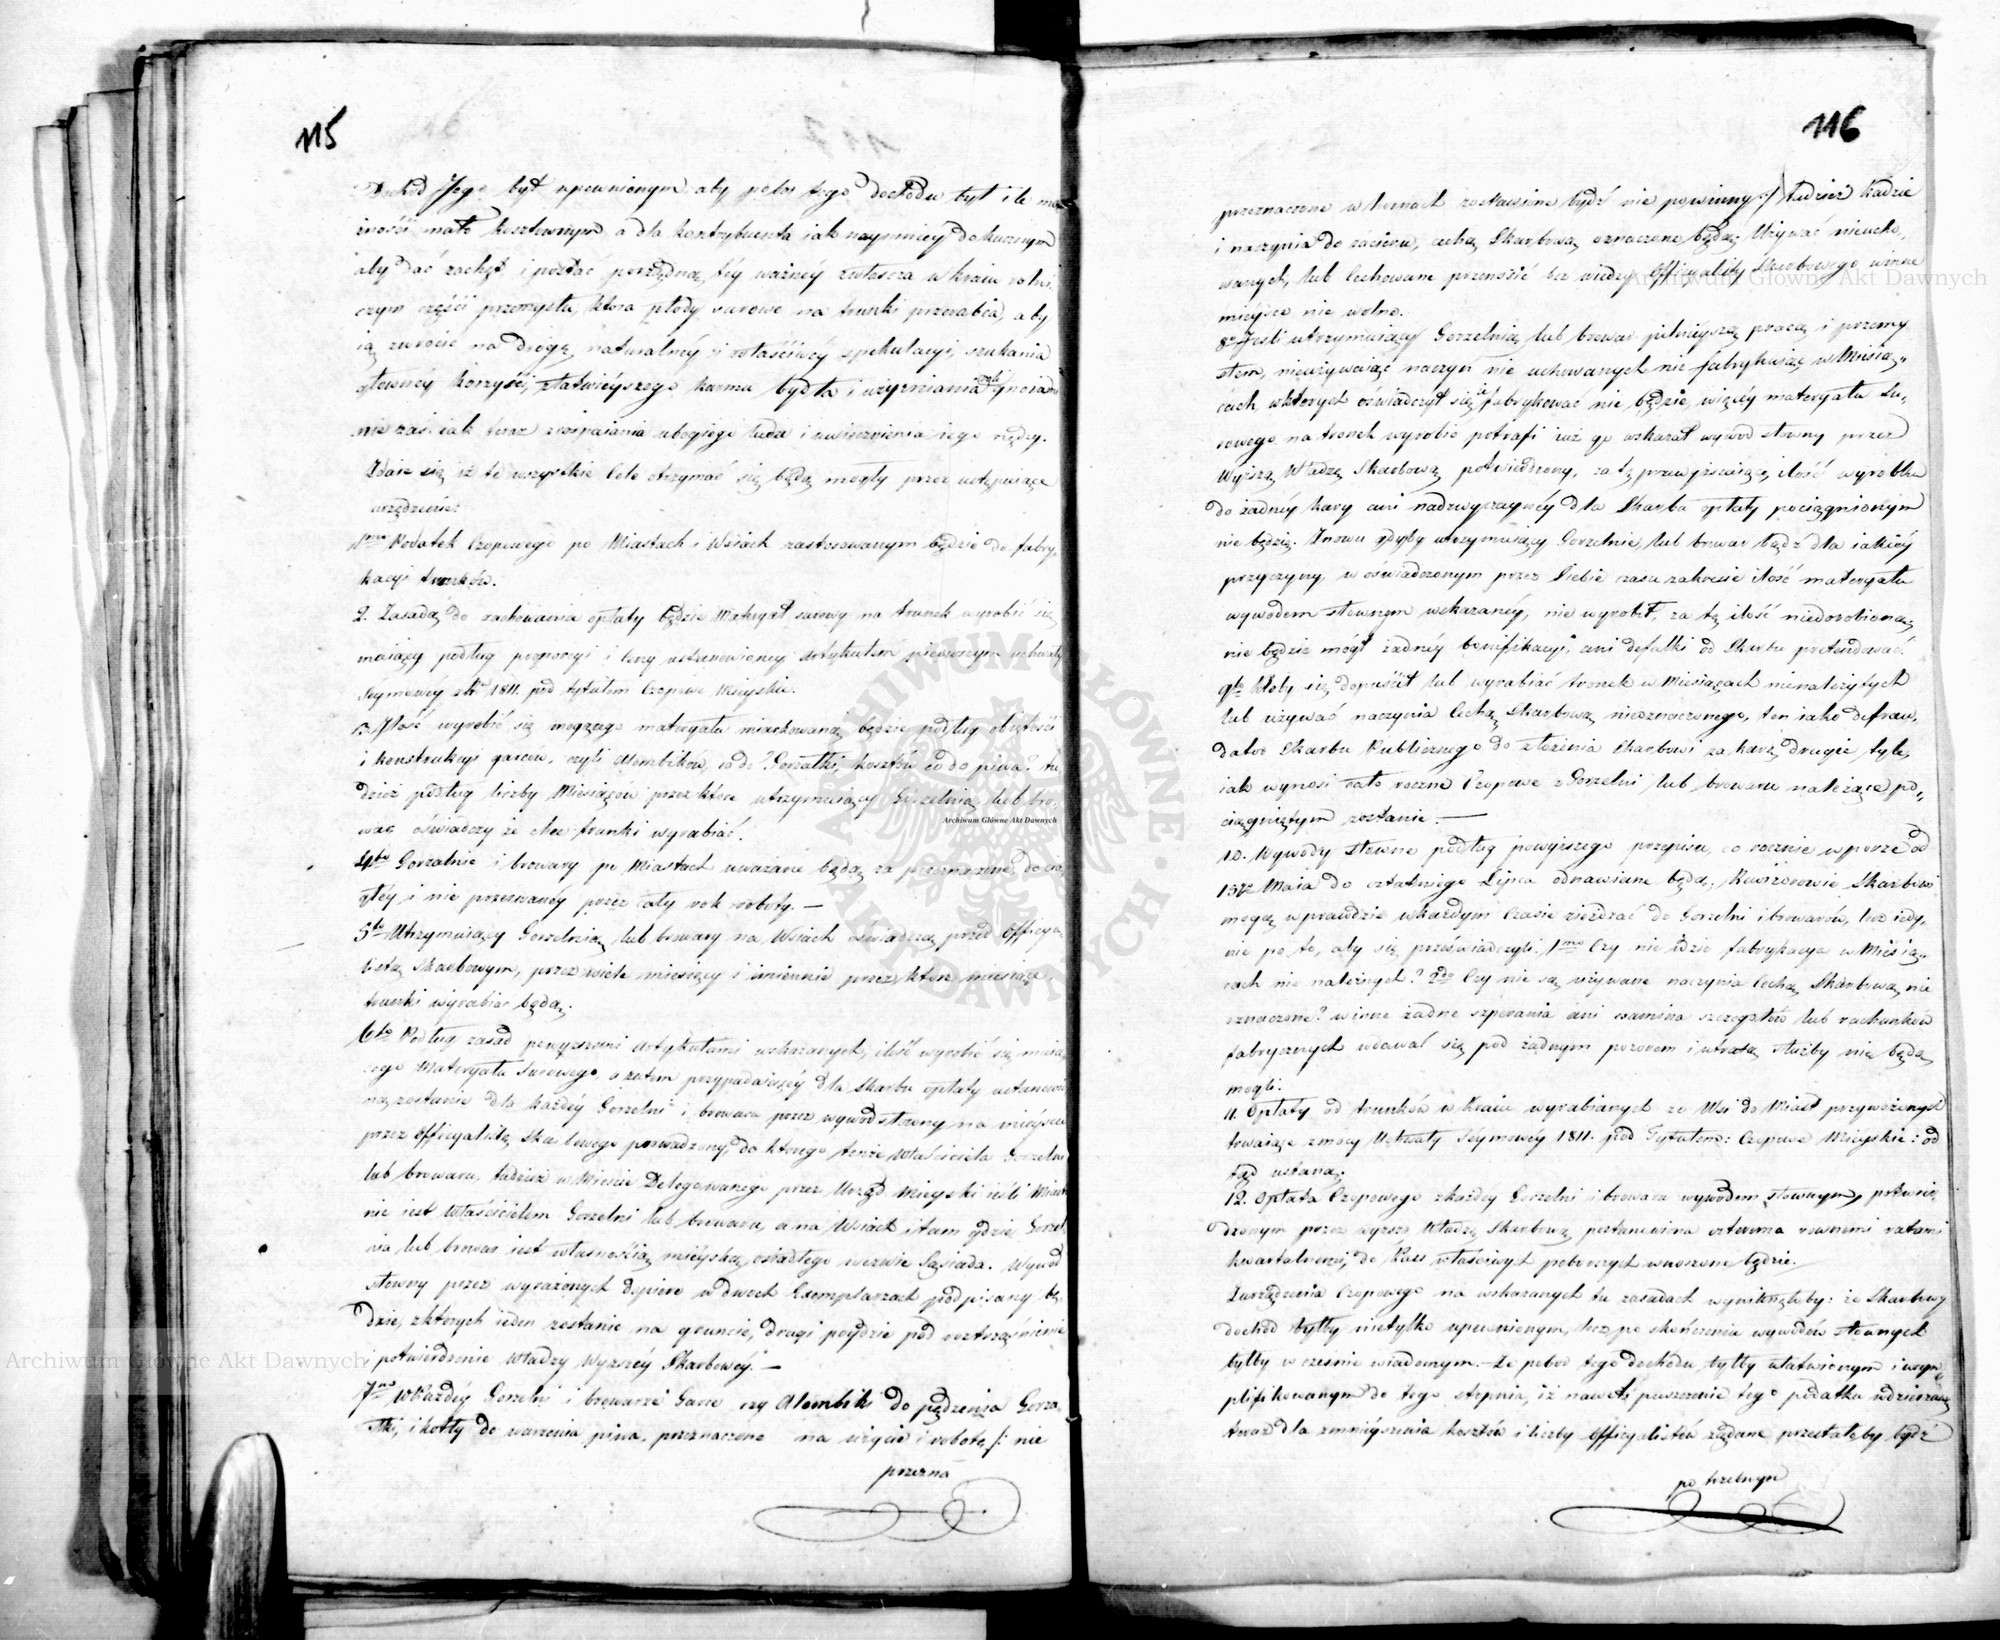 115
dochód Jego był upewnionym aby pobór tego dochodu był ile mo
żności mało kosztownym a dla kontrybuenta iak naymniey dokucznym
aby dać zachęt i postać porządną tey ważney zwłaszcza w kraiu rolni
czym części przemysłu, która płody surowe na trunki przerabia, aby
ią zwrócić na drogę naturalney i właściwey spekulacyi, szukania
główney korzyści, z łatwieyszego karmu bydła i
nie zaś iak teraz z rozpaiania ubogiego ludu i uwiecznienia iego nędzy.
Zdaie się iż te wszystkie Cele otrzymać się będą mogły przez następuiące
urządzenie:
1mo Podatek Czopowego po Miastach i Wsiach zastosowanym będzie do fabry,
kacyi trunków.
2. Zasadą do zachowania opłaty będzie Materyał surowy na trunek wyrobić się
maiący podług proporcyi i ceny ustanowioney artykułem pierwszym uchwały
Seymowey 1811. pod tytułem Czopowe Mieyskie.
3. Ilość wyrobić się mogącego materyału miarkowaną będzie podług obiętości
i konstrukcyi garców, czyli Alembików, co do Gorzałki, kosztów co do piwa? tu
dzież podług liczby Miesięcy przez które utrzymuiący Gorzelnią lub bro,
war oświadczy że chce trunki wyrabiać.
4to Gorzelnie i browary po Miastach uważane będą za przeznaczone do cią,
głey i nie przerwaney przez cały rok roboty. —
5to Utrzymuiący Gorzelnią, lub browary na Wsiach oświadczą przed Officya,
listą Skarbowym, przez wiele miesięcy i imiennie przez które miesiące
trunki wyrabiać będą.
6to Podług zasad powyższemi artykułami wskazanych, ilość wyrobić się maią,
cego Materyału Surowego, a zatem przypadaiącey dla Skarbu opłaty ustanowio
ną zostanie dla każdey Gorzelni i browaru przez wywód słowny na mieyscu
przez Officyalistę Skarbowego prowadzony, do którego tenże Właściciela Gorzelni
lub browaru, tudzież w Mieście Delegowanego przez Urząd Mieyski ieśli Miasto
nie iest Właścicielem Gorzelni lub browaru, a na Wsiach i tam gdzie Gorzel,
nia lub browar iest własnością mieyską osiadłego wezwie Sąsiada. Wywód
słowny przez wyrażonych dopiero w dwóch Exemplarzach podpisany bę,
dzie, z których ieden zostanie na gruncie, drugi poydzie pod roztrząśnienie
i potwierdzenie Władzy Wyższey Skarbowey. —
7mo W Każdey Gorzelni i browarze Garce czy Alembiki do pędzenia Gorza,
łki, i kotły do warzenia piwa, przeznaczone na użycie i robotę /: nie
przezna
116
przeznaczone w domach zostawione bydź nie powinny :/ tudzież Kadzie
i naczynia do zacieru, cechą Skarbową oznaczone będą; Używać niececho,
wanych, lub Cechowane przenosić bez wiedzy Officyalisty Skarbowego w inne
mieysce nie wolno.
8. Jeśli utrzymuiący Gorzelnią lub browar pilnieyszą pracą i przemy
słem, nieużywaiąc naczyń nie cechowanych nie fabrykuiąc w Miesią,,
cach, w których oświadczył się iż fabrykować nie będzie, więcey materyału Su,
rowego na trunek wyrobić potrafi iuż go wskazał wywód słowny przez
Wyższą Władzę Skarbową potwierdzony, za tę przewyższaiącą ilość wyrobku
do żadney kary ani nadzwyczayney dla Skarbu opłaty pociągnionym
nie będzie. Znowu gdyby utrzymuiący Gorzelnie, lub browar bądź dla iakiey
przyczyny, w oświadczonym przez Siebie czasu zakresie ilość materyału
wywodem słownym wskazaney, nie wyrobił, za tę ilość niedorobioną
nie będzie mógł żadney bonifikacyi, ani defalki od Skarbu pretendować.
9te Ktoby się dopuścił lub wyrabiać trunek w Miesiącach nienależytych
lub używać naczynia Cechą Skarbową nieoznaczonego, ten iako defrau,
dator Skarbu Publicznego do złożenia Skarbowi za karę drugie tyle,
iak wynosi całe roczne Czopowe z Gorzelni lub browaru należące po,
ciągniętym zostanie. —
10. Wywody słowne podług powyższego przepisu, co rocznie w porze od
15go Maia do ostatniego Lipca odnawiane będą. Rewizorowie Skarbowi
mogą wprawdzie w każdym Czasie zieżdżać do Gorzelni i browarów, lecz iedy,
nie po to, aby się przeświadczyli. 1mo Czy nie idzie fabrykacya w Miesią,
cach nie należnych? 2do Czy nie są używane naczynia Cechą Skarbową nie
oznaczone? w inne żadne szperania ani examina szczegółów lub rachunków
fabrycznych wdawać się pod żadnym pozorem i utratą służby nie będą
mogli.
11. Opłaty od trunków w Kraiu wyrabianych ze Wsi do Miast przywożonych
trwaiące z mocy Uchwały Seymowey 1811. pod Tytułem: Czopowe Mieyskie: od
tąd ustaną.
12. Opłata Czopowego z każdey Gorzelni i browaru wywodem słownym, potwier,
dzonym przez wyższą Władzę Skarbową postanowiona czterema równemi ratami
kwartalnemi, do Kass właściwych poborczych wnoszona będzie.
Z urządzenia Czopowego na wskazanych tu zasadach wyniknęłoby: że Skarbowy
dochód byłby nietylko upewnionym, lecz po skończeniu wywodów słownych
byłby wcześnie wiadomym. — Że pobór tego dochodu byłby ułatwionym i uzym,
plifikowanym do tego stopnia, iż nawet puszczenie tego podatku w dzierżawę
teraz dla zmnieyszenia kosztów i liczby Officyalistów żądane, przestałoby bydź
potrzebnym